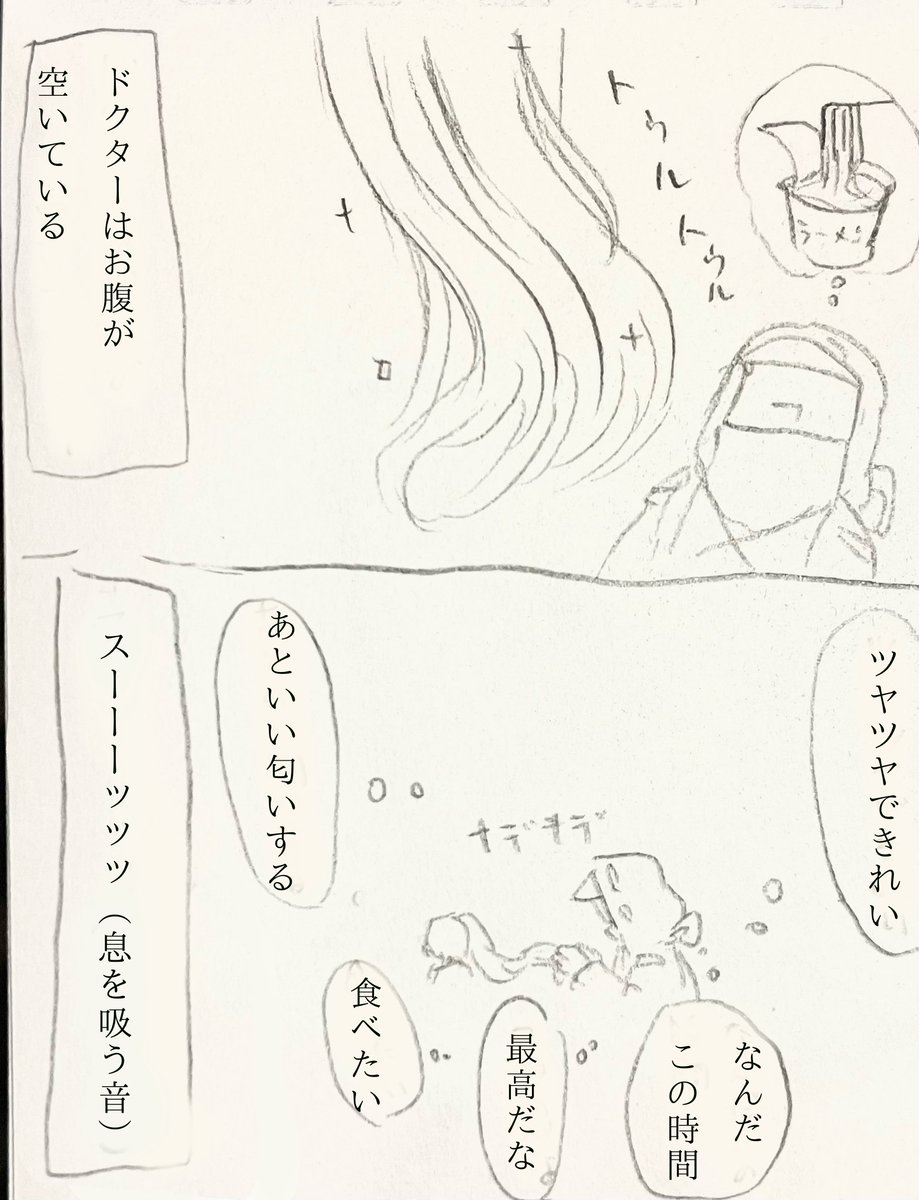 ラーメン
トゥル
トゥル
ドクターはお腹が
空いている
ツヤツヤできれい
なんだ
この時間
最高だな
ナデナデ
食べたい
あといい匂いする
スーーーッッッ（息を吸う音）